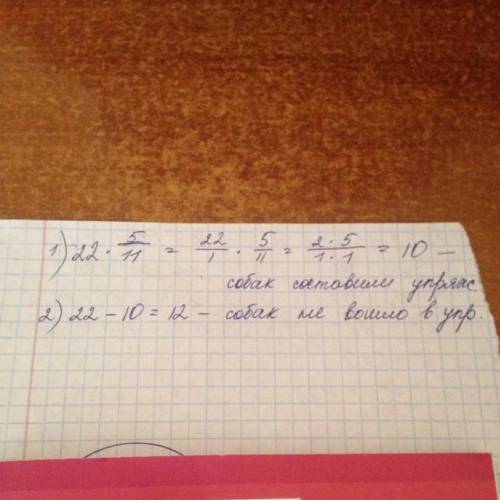 1) 22 · 5/11 = 22/1 · 5/11 = 2·5/1·1 = 10 —
собак составили упряж
2) 22 – 10 = 12 – собак не вошло в упр.